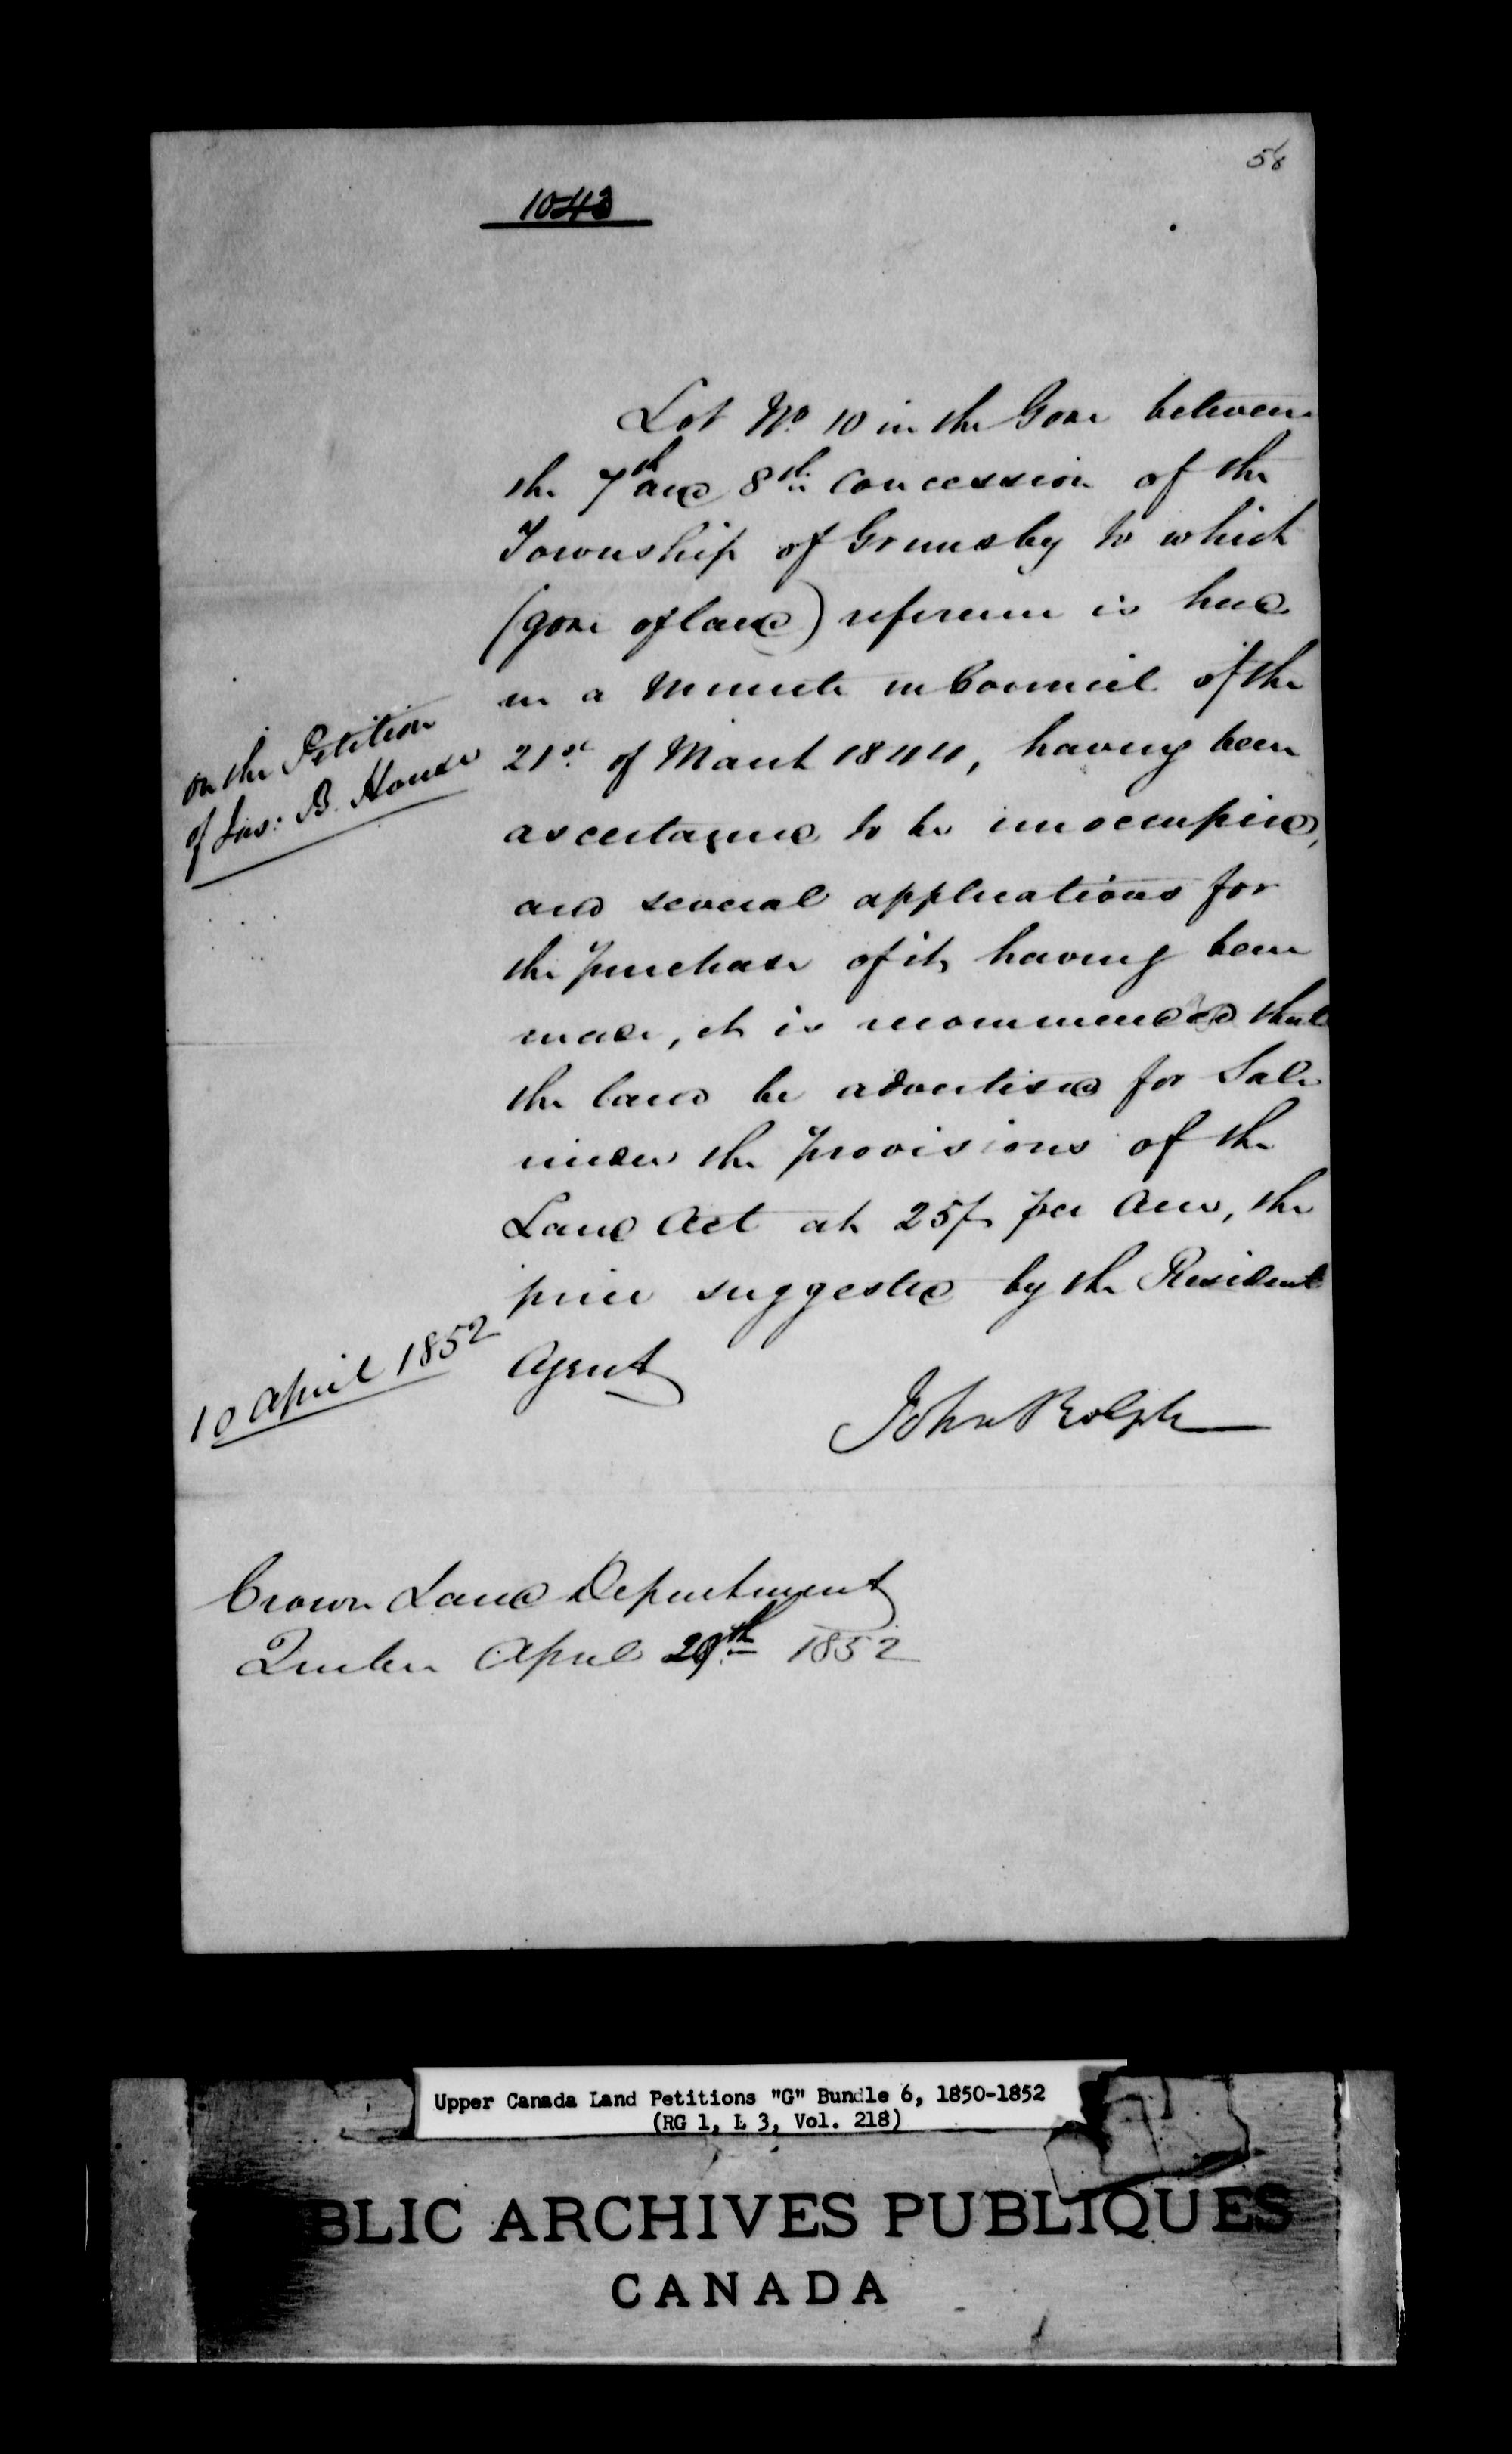 58
1043
Lot No. 10 in the Gore between
the 7th and 8th concession of the
Township of Grimsby to which
(gore of land) reference is had
in a Minute in Council of the
21st of March 1844, having been
ascertained to be unoccupied,
and several applications for
the purchase of it, having been
made, it is recommended that
the land be advertised for Sale
under the provisions of the
Land Act at 25/- per Acre, the
price suggested by the Resident
Agent
on the Petition
of Jas: B. House
10 April 1852
John Rolph
Crown Land Department
Quebec April 29th 1852
Upper Canada Land Petitions "G" Bundle 6, 1850-1852
(RG 1, L 3, Vol. 218)
BLIC ARCHIVES PUBLIQUES
CANADA